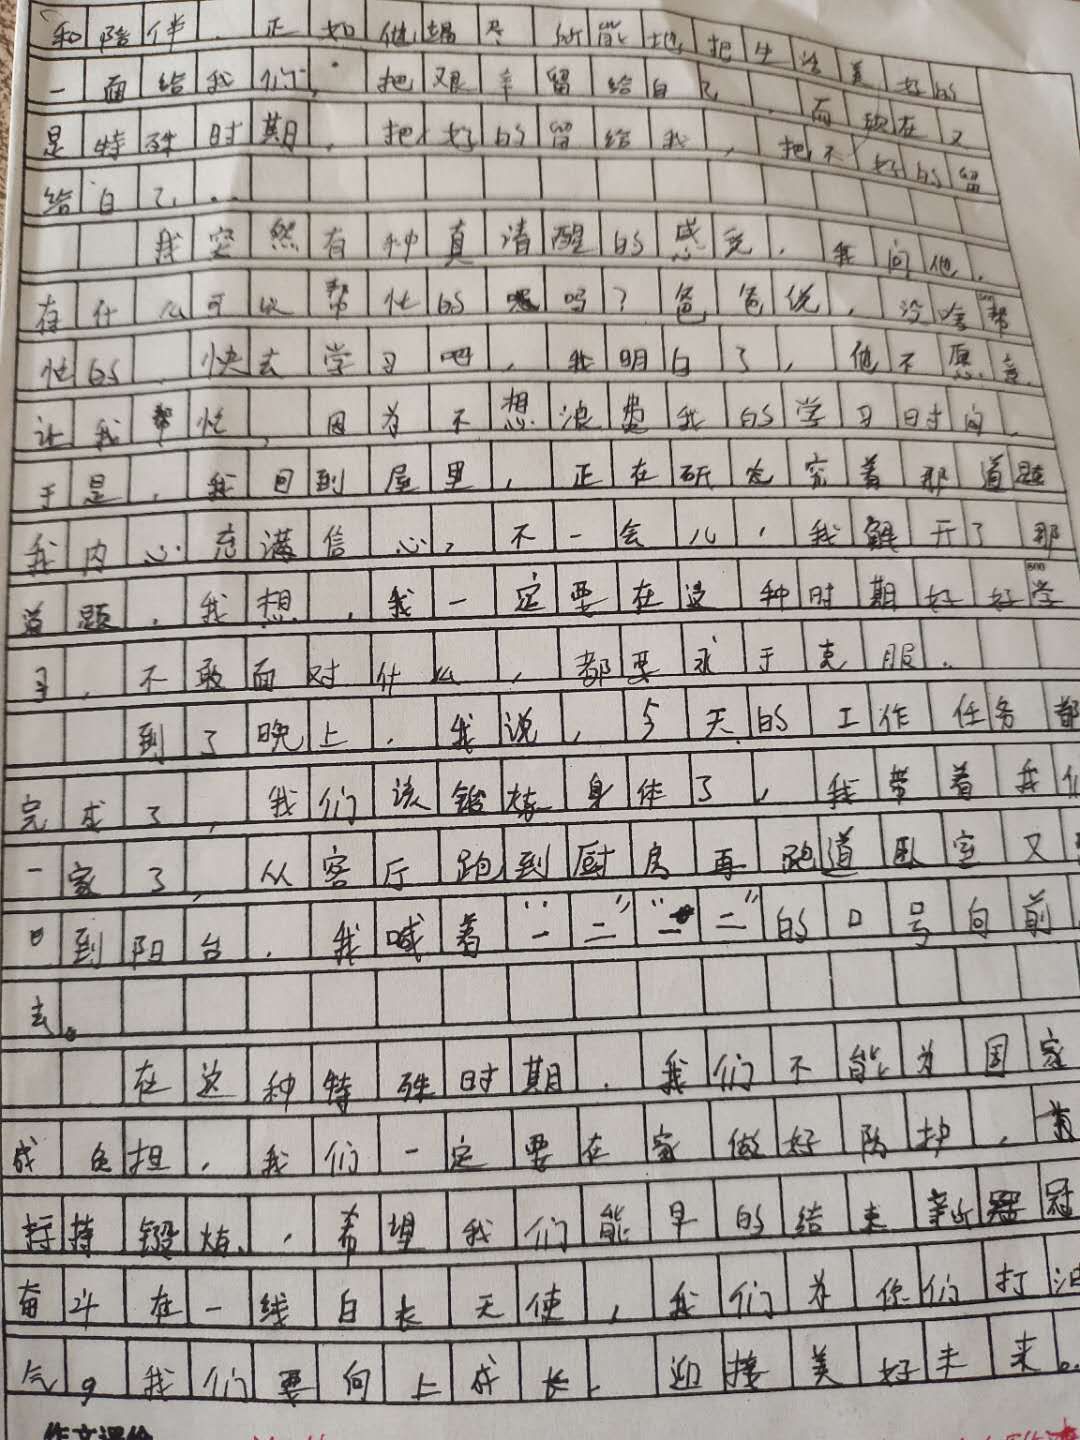 和陪伴，正如他竭尽所能地把生活美好的
一面给我们，把艰辛留给自己，而现在又
是特殊时期，把好的留给我，把不好的留
给自己，..
我突然有种真清醒的感觉，我问他，
有什么可以帮忙的吗？爸爸说，没啥帮
忙的，快去学习吧，我明白了，他不愿意
让我帮忙，因为不想浪费我的学习时间，
于是，我回到屋里，正在研究着那道题
我内心充满信心，不一会儿，我解开了那
600
道题，我想，我一定要在这种时期好好学
习，不敢面对什么，都要永于克服。
到了晚上，我说，今天的工作任务都
完成了，我们该锻炼身体了，我带着我们
一家了，从客厅跑到厨房再跑道卧室又
到阳台，我喊着“一二”“一二”的口号向前
去。
在这种特殊时期，我们不能为国家
成负担，我们一定要在家做好防护，
持锻炼，希望我们能早的结束新冠
奋斗在一线白衣天使，我们为你们打油
气。我们要向上成长，迎接美好未来。
作文评价